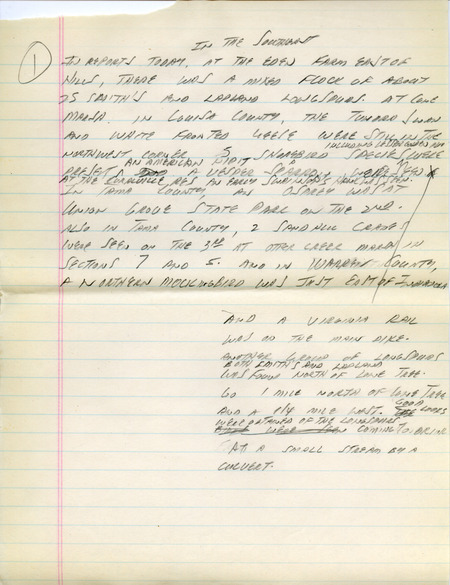 1
IN THE SOUTHEAST
IN REPORTS TODAY. AT THE EDEN FARM EAST OF
HILLS, THERE WAS A MIXED FLOCK OF ABOUT
25 SMITH'S AND LAPLAND LONGSPURS. AT CONE
MARSH. IN LOUISA COUNTY, THE TUNDRA SWAN
AND WHITE FRONTED GEESE WERE STILL IN THE
NORTHWEST CORNER 5 SHOREBIRD SPECIES WERE
INCLUDING
AN AMERICAN PIPIT
A VESPER SPARROW WERE SEEN
AT THE CORALVILLE RES AN EARLY
IN TAMA COUNTY, AN OSPREY WAS AT
UNION GROVE STATE PARK ON THE 2ND.
ALSO IN TAMA COUNTY, 2 SANDHILL CRANES
WERE SEEN ON THE 3RD AT OTTER CREEK MARSH IN
SECTIONS 7 AND 5. AND IN WARREN COUNTY,
A NORTHERN MOCKINGBIRD WAS JUST EAST OF INDIANOLA
AND A VIRGINIA RAIL
WAS ON THE MAIN DIKE.
ANOTHER GROUP OF LONGSPURS
BOTH SMITH'S AND LAPLAND
WAS FOUND NORTH OF LONE TREE.
GO 1 MILE NORTH OF LONE TREE
AND A 1/4 MILE EAST. GOOD LOOKS
WERE OBTAINED OF THE LONGSPURS
COMING TO DRINK
AT A SMALL STREAM BY A
CULVERT.